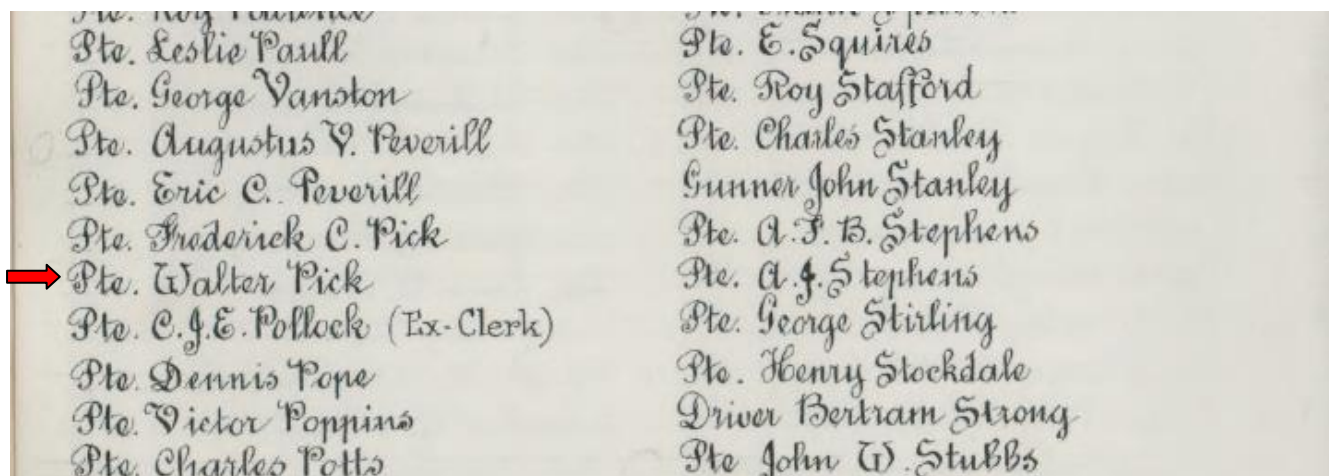 Pte. Leslie Paull
Pte. George Vanston
Pte. Augustus V. Peverill
Pte. Eric C. Peverill
Pte. Frederick C. Pick
Pte. Walter Pick
Pte. C.J.E. Pollock (Ex-Clerk)
Pte. Dennis Pope
Pte. Victor Poppins
Pte. Charles Potts
Pte. E. Squires
Pte. Roy Stafford
Pte. Charles Stanley
Gunner John Stanley
Pte. A.F.B. Stephens
Pte. A.J. Stephens
Pte. George Stirling
Pte. Henry Stockdale
Driver Bertram Strong
Pte John W. Stubbs